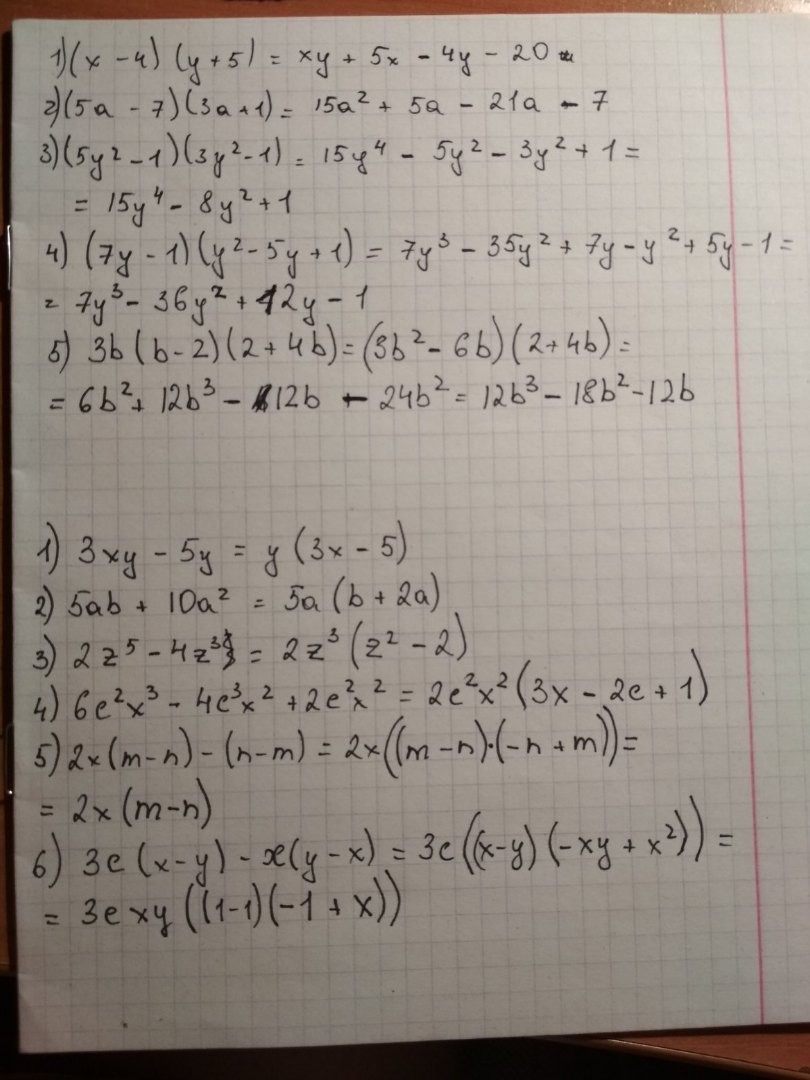 1)(x - 4) (y + 5) = xy + 5x - 4y - 20
2)(5a - 7)(3a + 1) = 15a² + 5a - 21a - 7
3)(5y² - 1)(3y² - 1) = 15y⁴ - 5y² - 3y² + 1 =
= 15y⁴ - 8y² + 1
4) (7y - 1)(y² - 5y + 1) = 7y³ - 35y² + 7y - y² + 5y - 1 =
= 7y³ - 36y² + 12y - 1
5) 3b(b - 2)(2 + 4b) = (3b² - 6b)(2 + 4b) =
= 6b² + 12b³ - 12b - 24b² = 12b³ - 18b² - 12b
1) 3xy - 5y = y(3x - 5)
2) 5ab + 10a² = 5a(b + 2a)
3) 2z⁵ - 4z³ = 2z³(z² - 2)
4) 6c²x³ - 4c³x² + 2c²x² = 2c²x²(3x - 2c + 1)
5) 2x(m - n) - (n - m) = 2x((m - n)·(-n + m)) =
= 2x(m - n)
6) 3c(x - y) - x(y - x) = 3c((x - y)(-xy + x²)) =
= 3cxy((1 - 1)(-1 + x))